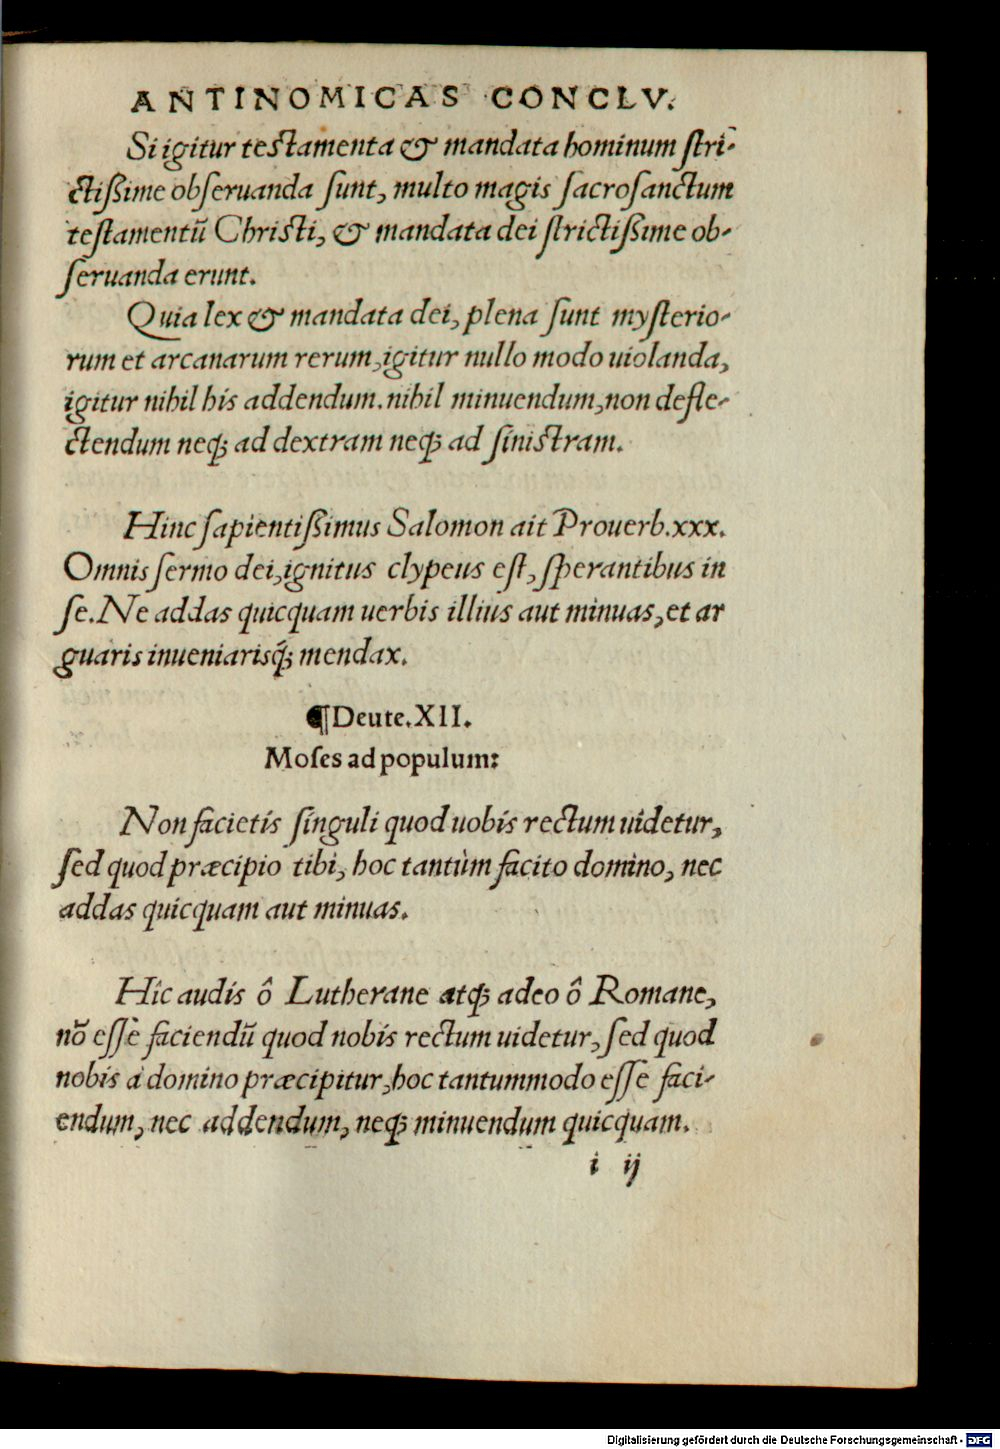 ANTINOMICAS CONCLV.
Si igitur testamenta & mandata hominum ſtri-
ctißime obſeruanda ſunt, multo magis ſacroſanctum
teſtamentū Chriſti, & mandata dei ſtrictißime ob-
ſeruanda erunt.
Quia lex & mandata dei, plena ſunt myſterio-
rum et arcanarum rerum, igitur nullo modo uiolanda,
igitur nihil his addendum. nihil minuendum, non defle-
ctendum neq; ad dextram neq; ad ſiniſtram.
Hinc ſapientißimus Salomon ait Prouerb. xxx.
Omnis ſermo dei, ignitus clypeus eſt, ſperantibus in
ſe. Ne addas quicquam uerbis illius aut minuas, et ar
guaris inueniarisq́; mendax.
¶ Deute. XII.
Moſes ad populum:
Non facietis ſinguli quod uobis rectum uidetur,
ſed quod præcipio tibi, hoc tantùm facito domino, nec
addas quicquam aut minuas.
Hîc audis ô Lutherane atq; adeo ô Romane,
nō eſſe faciendū quod nobis rectum uidetur, ſed quod
nobis à domino præcipitur, hoc tantummodo eſſe faci-
endum, nec addendum, neq; minuendum quicquam.
i ij
Digitalisierung gefördert durch die Deutsche Forschungsgemeinschaft - DFG